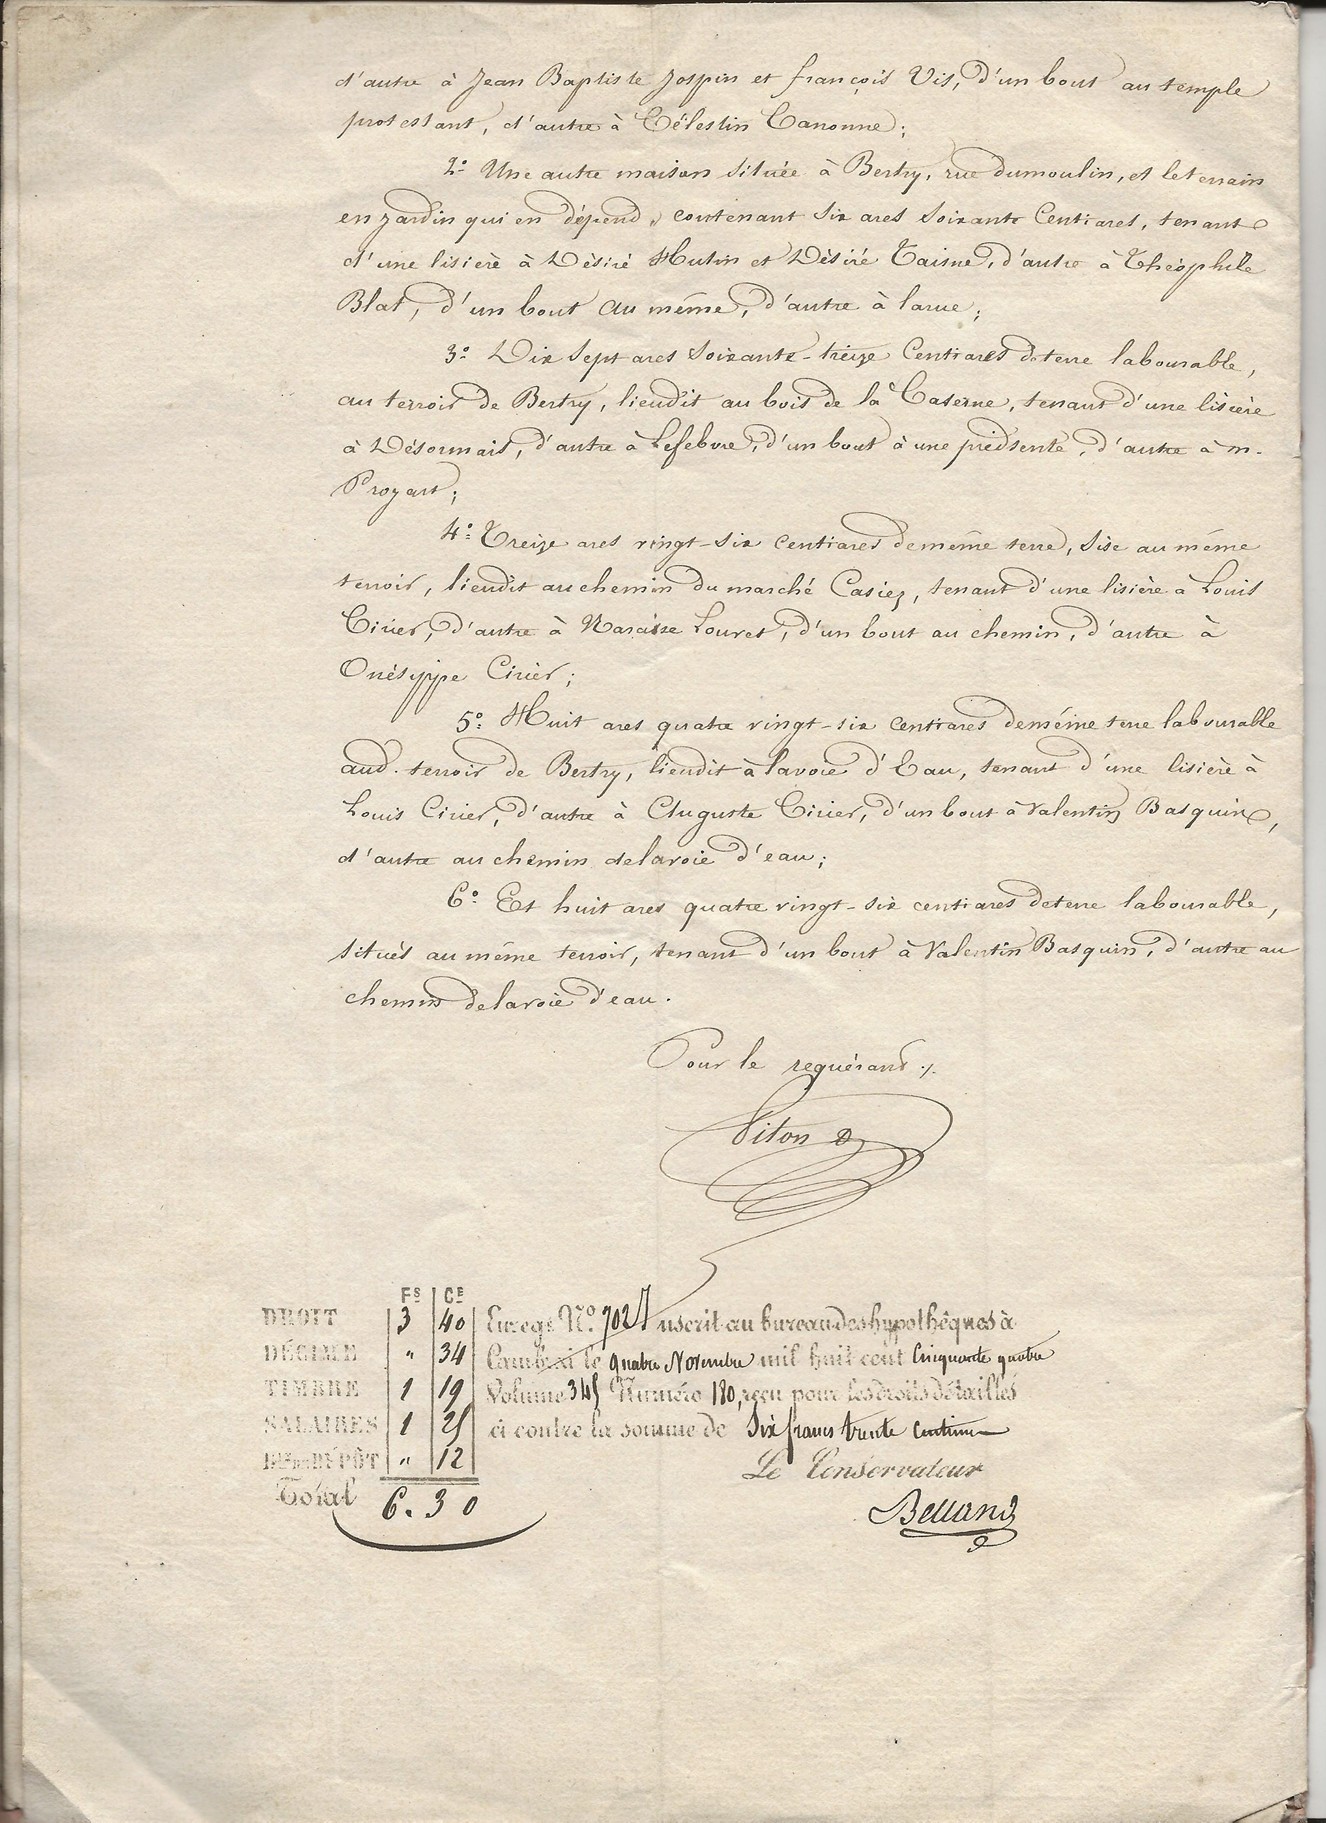 d'autre à Jean Baptiste Jospin et françois Vis, d'un bout au temple
protestant, d'autre à Célestin Canonne;
2° Une autre maison située à Bertry, rue dumoulin, et leterrain
en jardin qui en dépend, contenant six ares soixante Centiares, tenant
d'une lisière à Désiré Hutin et Désiré Taisne, d'autre à Théophile
Blat, d'un bout au même, d'autre à larue;
3° Dix sept ares soixante-treize Centiares deterre labourable,
au terroir de Bertry, lieudit au bois de la Caserne, tenant d'une lisière
à Désormais, d'autre à Lefebvre, d'un bout à une piedsente, d'autre à m.
Proyart;
4° Treize ares vingt-six centiares demême terre, sise au même
terroir, lieudit auchemin du marché Casiez, tenant d'une lisière à Louis
Cirier, d'autre à Narcisse Louvet, d'un bout au chemin, d'autre à
Onésippe Cirier;
5° Huit ares quatre vingt-six centiares demême terre labourable
aud. terroir de Bertry, lieudit à lavoie d'Eau, tenant d'une lisière à
Louis Cirier, d'autre à Auguste Cirier, d'un bout à Valentin Basquin,
d'autre au chemin delavoie d'eau;
6° Et huit ares quatre vingt-six centiares deterre labourable,
situés au même terroir, tenant d'un bout à Valentin Basquin, d'autre au
chemin delavoie d'eau.
Pour le requérant
Piton
Fs Ce
DROIT 3 40 Enregé No. 702 Inscrit au bureau des hypothèques à
DÉCIME " 34 Cambrai le quatre Novembre mil huit cent Cinquante quatre
TIMBRE 1 19 Volume 345 Numéro 180, reçu pour les droits détaillés
SALAIRES 1 25 ci contre la somme de Six francs trente centimes
DÉPÔT " 12 Le Conservateur
Total 6.30
Belland